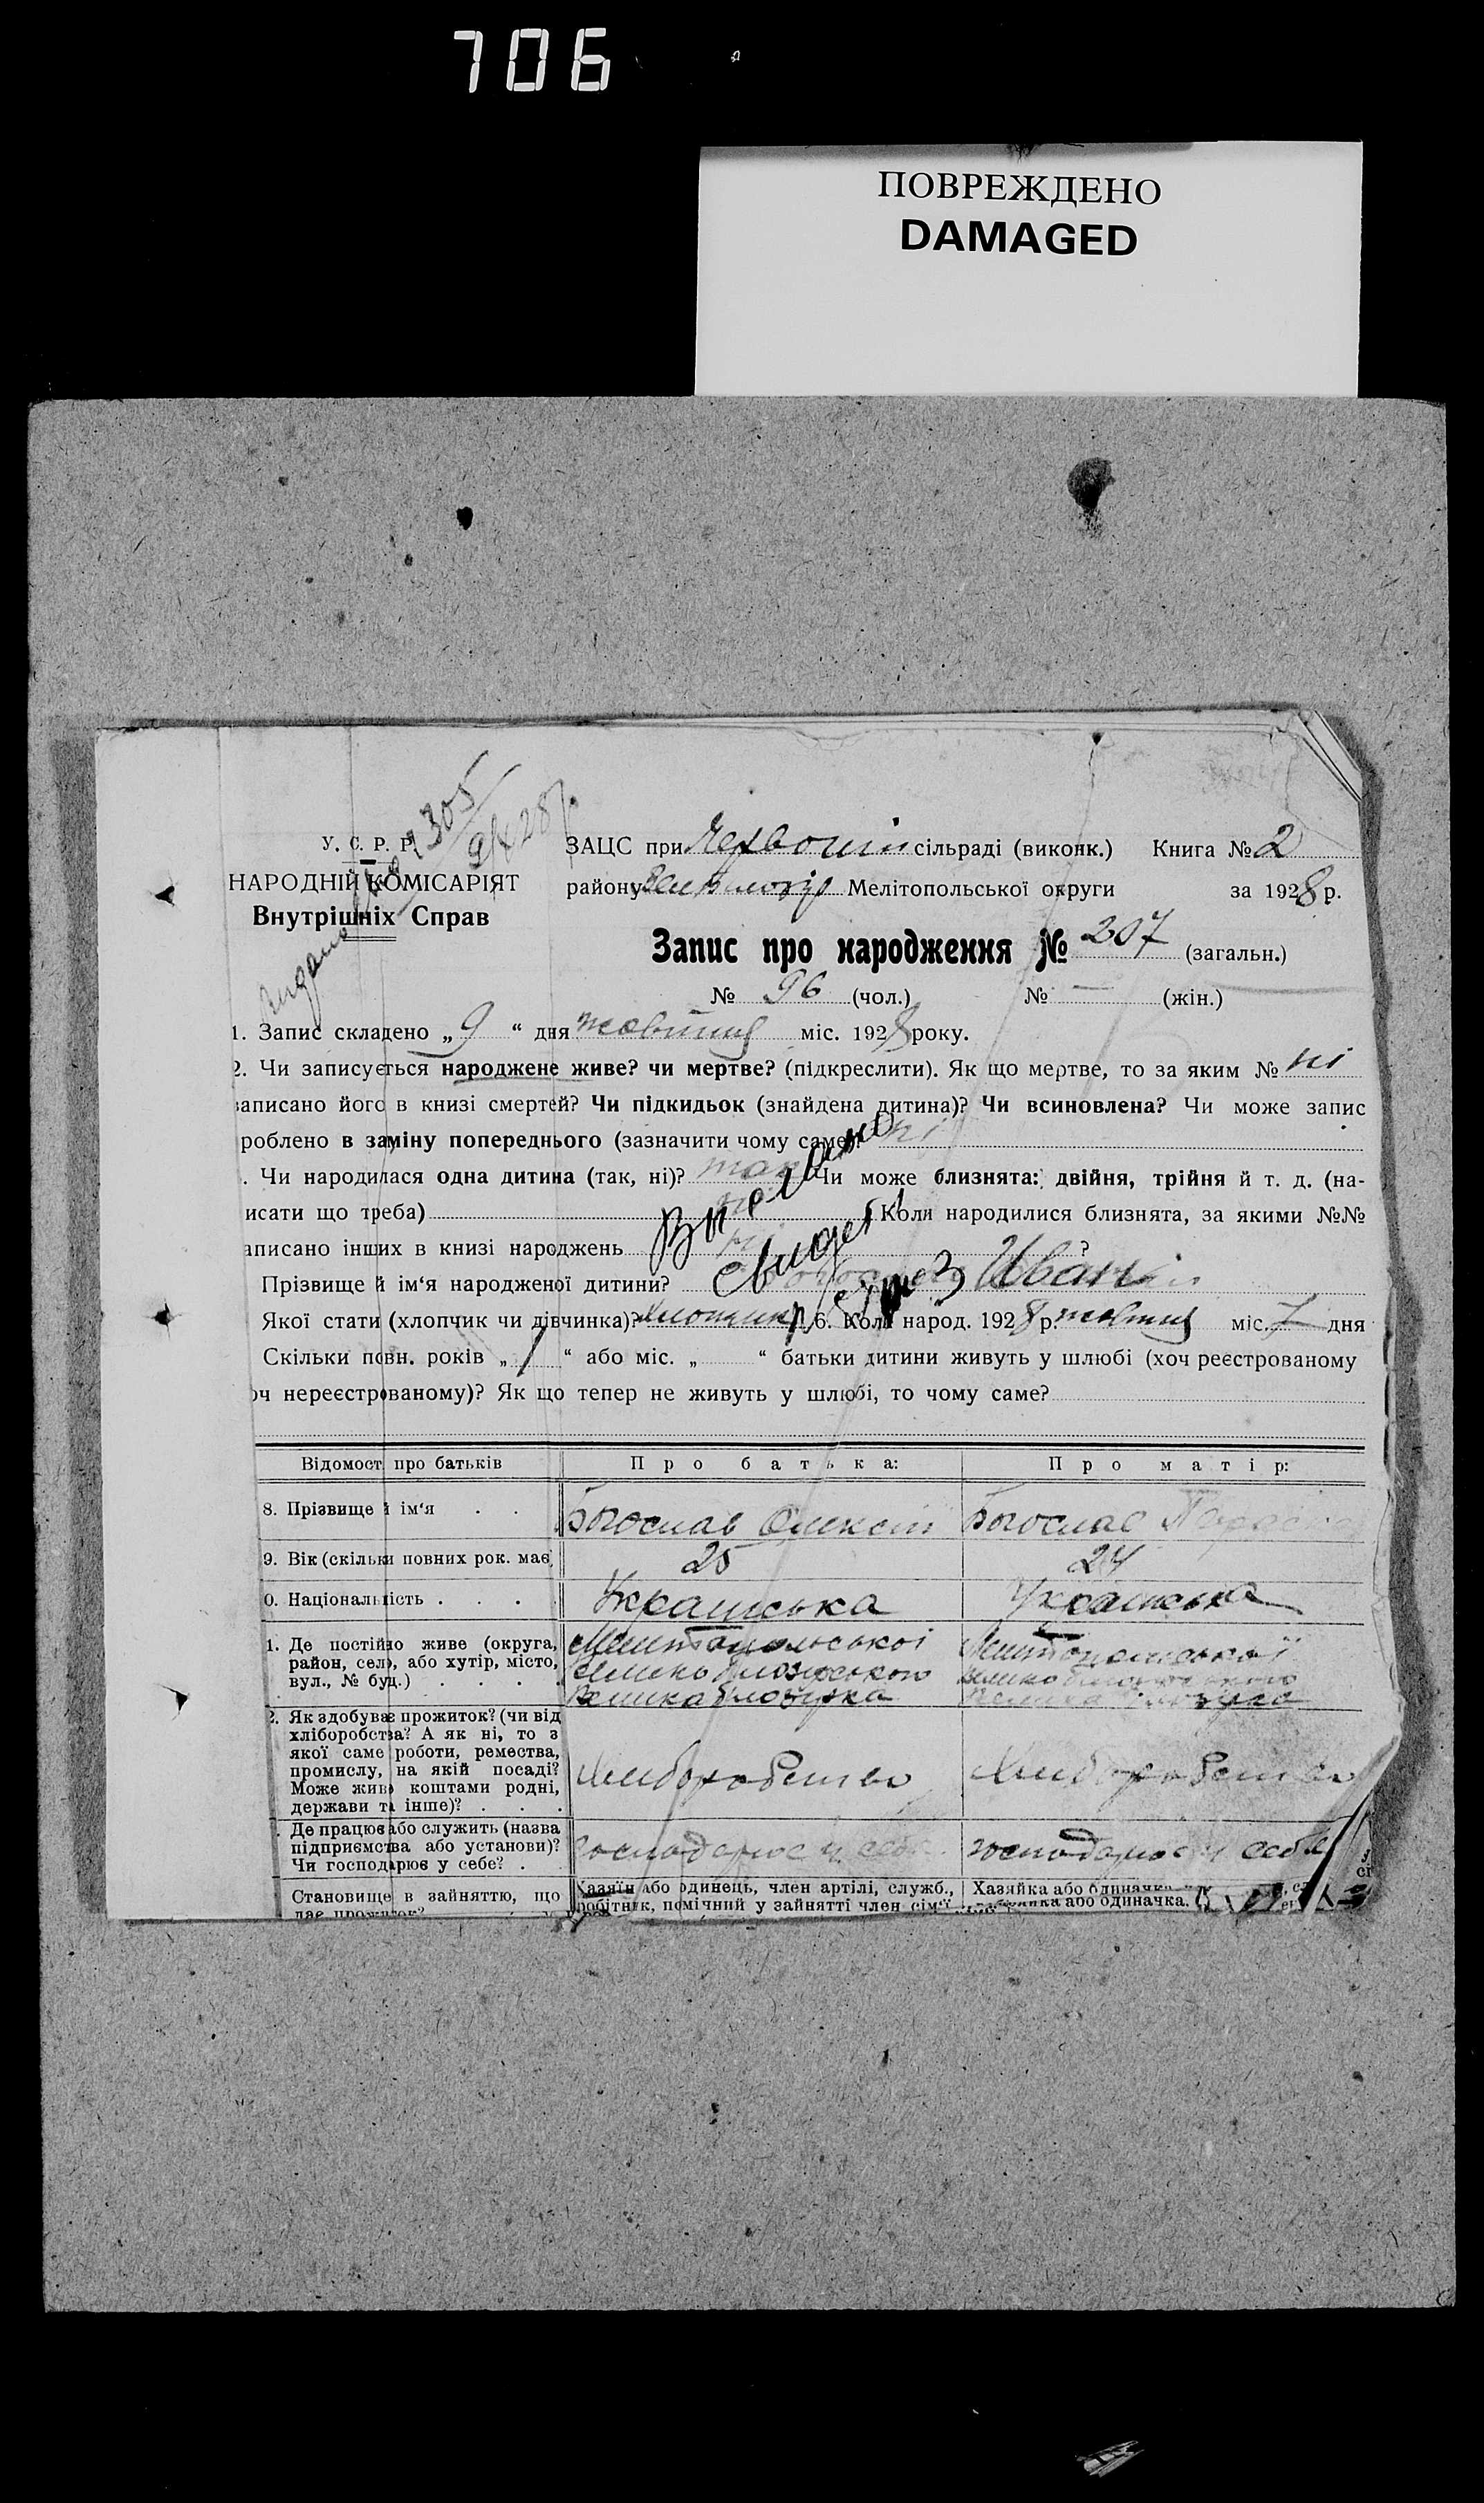 706
ПОВРЕЖДЕНО
DAMAGED
У. С. Р. Р.
НАРОДНІЙ КОМІСАРІЯТ
Внутрішніх Справ
305
ЗАЦС при сільраді (виконк.) Книга № 2
району Мелітопольської округи за 1928 р.
Запис про народження № 207 (загальн.)
№ 96 (чол.) № — (жін.)
1. Запис складено „ 9 “ дня жовтня міс. 1928 року.
2. Чи записується народжене живе? чи мертве? (підкреслити). Як що мертве, то за яким № ні
записано його в книзі смертей? Чи підкидьок (знайдена дитина)? Чи всиновлена? Чи може запис
роблено в заміну попереднього (зазначити чому саме)? ні
. Чи народилася одна дитина (так, ні)? так Чи може близнята: двійня, трійня й т. д. (на-
исати що треба) Коли народилися близнята, за якими №№
аписано інших в книзі народжень ні ?
Прізвище й ім‘я народженої дитини? Иван
Якої стати (хлопчик чи дівчинка)? хлопчик 6. Коли народ. 1928 р. жовтня міс. 7 дня
Скільки повн. років „ 1 “ або міс. „ “ батьки дитини живуть у шлюбі (хоч реєстрованому
оч нереєстрованому)? Як що тепер не живуть у шлюбі, то чому саме?
Відомост про батьків Про батька: Про матір:
8. Прізвище й ім‘я . . Богослав Олексій Богослав
9. Вік (скільки повних рок. має) 25 24
0. Національність . . . . Українська Українська
1. Де постійно живе (округа, Мелітопольської Мелітопольської
район, село, або хутір, місто, Великобілозірського Великобілозірського
вул., № буд.) . . . . Велика Білозірка Велика Білозірка
2. Як здобуває прожиток? (чи від
хліборобства? А як ні, то з
якої саме роботи, ремества,
промислу, на якій посаді? Хліборобство Хліборобство
Може живе коштами родні,
держави та інше)? . . .
. Де працює або служить (назва
підприємства або установи)? господарює у себе господарює у себе
Чи господарює у себе? .
Становище в зайняттю, що Хазяїн або одинець, член артілі, служб., Хазяйка або одиначка
дає прожиток? робітник, помічний у зайнятті член сім‘ї або одиначка.